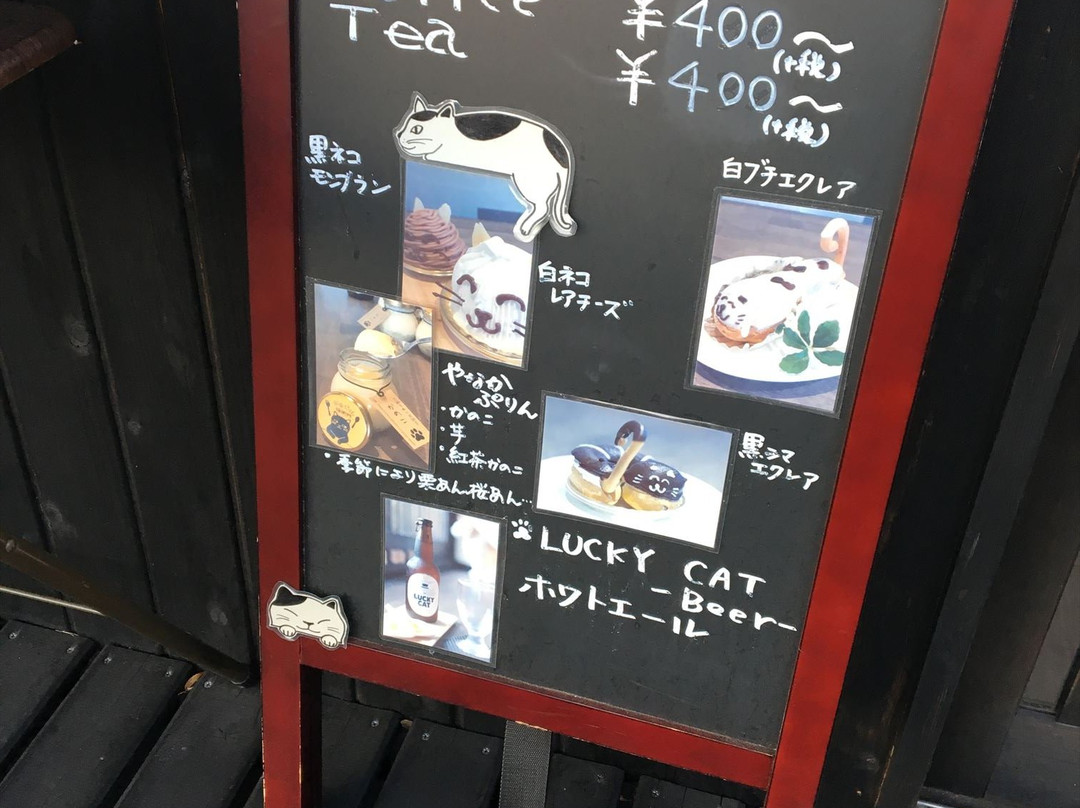 Tea
¥400〜
(+税)
¥400〜
(+税)
黒ネコ
モンブラン
白ブチエクレア
白ネコ
レアチーズ
やなか
ぷりん
・かのこ
・芋
・紅茶かのこ
・季節により栗あん桜あん…
黒シマ
エクレア
LUCKY CAT
-Beer-
ホワイトエール
LUCKY
CAT